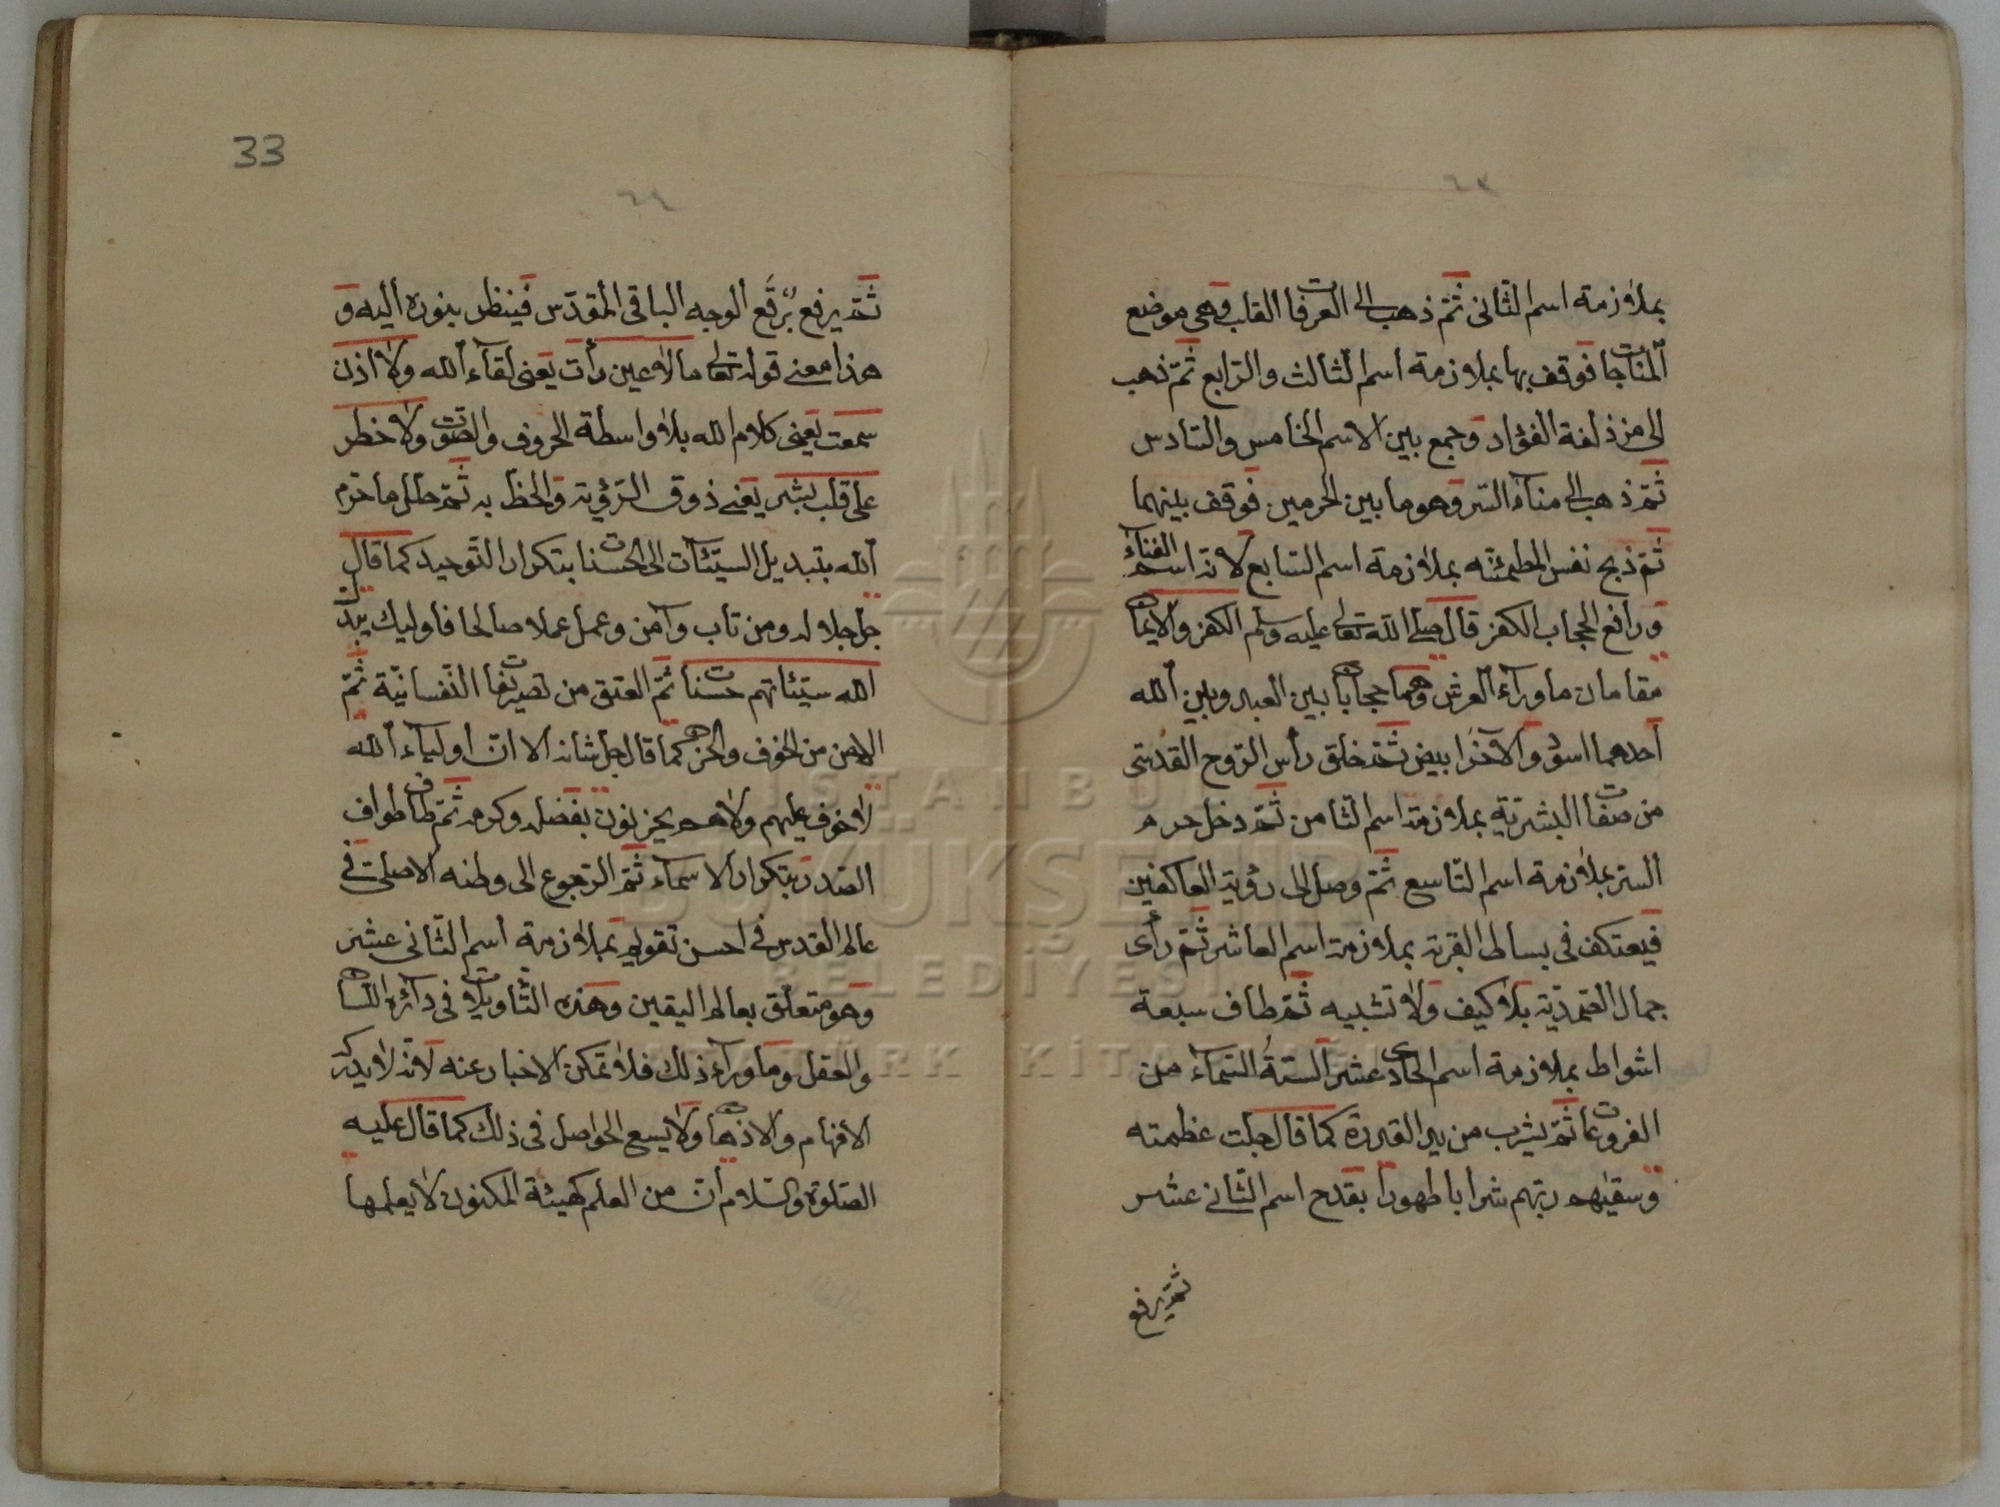 بملازمة اسم الثانى ثم ذهب الى العرفات القلب وهى موضع
المناجات فوقف بها بملازمة اسم الثالث والرابع ثم ذهب
الى مزذلفة الفؤاد وجمع بين الاسم الخامس والسادس
ثم ذهب الى مناء السر وهو ما بين الحرمين فوقف بينهما
ثم ذبح نفس المطمئنه بملازمة اسم السابع لانه اسم الفناء
ورافع الحجاب الكفر قال صلى الله تعالى عليه وسلم الكفر والايمان
مقامان ماوراء العرش وهما حجابان بين العبد وبين الله
احدهما اسود والآخر ابيض ثم خلق رأس الروح القدسى
من صفات البشرية بملازمة اسم الثامن ثم دخل حرم
السر بملازمة اسم التاسع ثم وصل الى رؤية العاكفين
فيعتكف فى بساط القربة بملازمة اسم العاشر ثم رأى
جمال الصمدية بلا كيف ولا تشبيه ثم طاف سبعة
اشواط بملازمة اسم الحادى عشر الستة السماء من
الفروعات ثم يشرب من يد القدرة كما قال جلت عظمته
وسقيهم ربهم شرابا طهورا بقدح اسم الثانى عشر
ثم يرفع
33
ثم يرفع برقع الوجه الباقى المقدس فينظر بنوره اليه و
هذا معنى قوله تعالى ما لا عين رأت يعنى لقاء الله ولا اذن
سمعت يعنى كلام الله بلا واسطة الحروف والصوت ولا خطر
على قلب بشر يعنى ذوق الرؤية والحظ به ثم حلل ما حرم
الله بتبديل السيئات الى الحسنات بتكرار التوحيد كما قال
جل جلاله ومن تاب وآمن وعمل عملا صالحا فاوليك يبدل
الله سيئاتهم حسنات ثم العتق من تصرفات النفسانية ثم
الامن من الخوف والحزن كما قال جل شانه الا ان اولياء الله
لا خوف عليهم ولا هم يحزنون بفضله وكرمه ثم طاف طواف
الصدر بتكرار الاسماء ثم الرجوع الى وطنه الاصلى فى
عالم القدس فى احسن تقويم بملازمة اسم الثانى عشر
وهو متعلق بعالم اليقين وهذه التأويلات فى دائرة اللسان
والعقل وما وراء ذلك فلا تمكن الاخبار عنه لانه لا يدركه
الافهام والاذهان ولا يسع الحواصل فى ذلك كما قال عليه
الصلوة والسلام ان من العلم كهيئة المكنون لا يعلمها